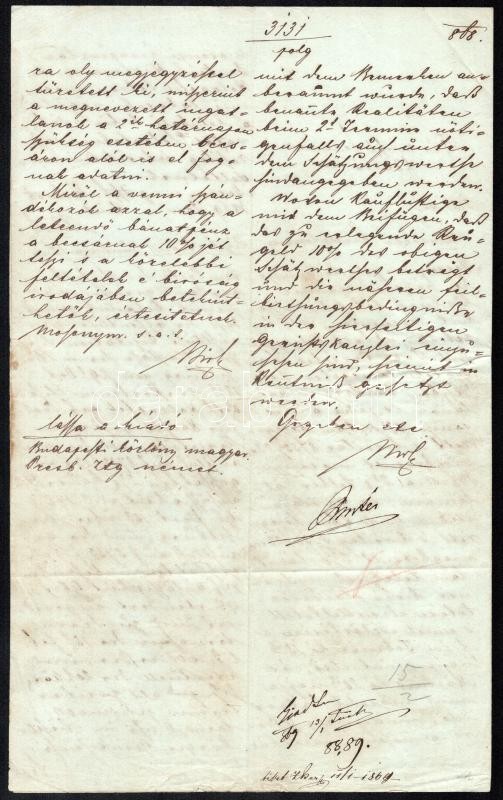 3131
polg
868.
ra oly megjegyzéssel
tüzetett ki, miszerint
a megnevezett ingat-
lanok a 2ik határnapon
szükség esetében becs-
áron alól is el fog-
nak adatni.
Miről a venni szán-
dékozók azzal, hogy a
leteendő bánatpénz
a becsárnak 10% jét
teszi s a közelebbi
feltételek e biróság
irodájában betekint-
hetők, értesitetnek.
Mosonym. s. a. t.
mit dem Bemerken an-
beraumt wurde, daß
benannte Realitäten
beim 2t Termine nöti-
genfalls auch unter
dem Schätzungswerthe
hindangegeben werden.
Wovon Kauflustige
mit dem Beifügen, daß
das zu erlegende Reu-
geld 10% des obigen
Schätzwerthes beträgt
und die näheren Feil-
biethungsbedingnisse
in der hierseitigen
Gerichtskanzlei einzu-
sehen sind, hiemit in
Kenntniß gesetzt
werden.
Gegeben etc
lássa a kiadó
Budapesti közlöny magyar.
Presb. Ztg német.
15/2
88,89.
1869
darabanth